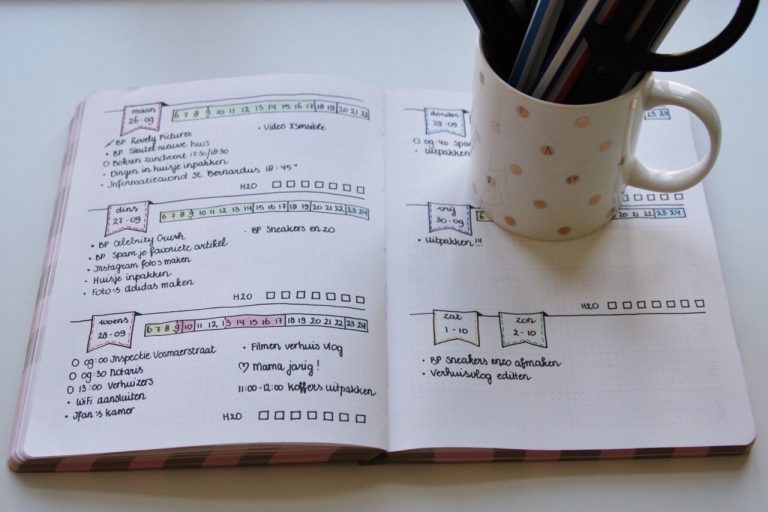 maan
26-09
6 7 8 9 10 11 12 13 14 15 16 17 18 19 20 21 22
BP Lovely Pictures
BP Sleutel nieuwe huis
Boksen Zandvoort 17:30/18:30
Dingen in huisje inpakken
Informatieavond St. Bernardus 18:45
• Video XSensible
H2O
dins
27-09
6 7 8 9 10 11 12 13 14 15 16 17 18 19 20 21 22 23 24
• BP Celebrity Crush
• BP Spam je favoriete artikel
• Instagram foto's maken
• Huisje inpakken
• Foto's adidas maken
• BP Sneakers en zo
H2O
woens
28-09
6 7 8 9 10 11 12 13 14 15 16 17 18 19 20 21 22 23 24
09:00 Inspectie Vosmaerstraat
09:30 Notaris
13:00 Verhuizers
• WiFi aansluiten
• Ifan's kamer
• Filmen verhuis vlog
♡ Mama jarig!
11:00-12:00 Koffers uitpakken
H2O
donder
29-09
23 24
Uitpakken
vrij
30-09
6
22 23 24
• Uitpakken !!!
H2O
zat
1-10
zon
2-10
• BP Sneakers enzo afmaken
• Verhuisvlog editten